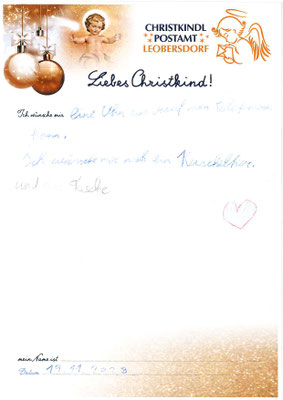 CHRISTKINDL
POSTAMT
LEOBERSDORF
Liebes Christkind!
Ich wünsche mir eine Uhr wo man telefonieren
kann.
Ich wünsche mir noch ein Kuscheltier.
und
mein Name ist
Datum 19.11.2023